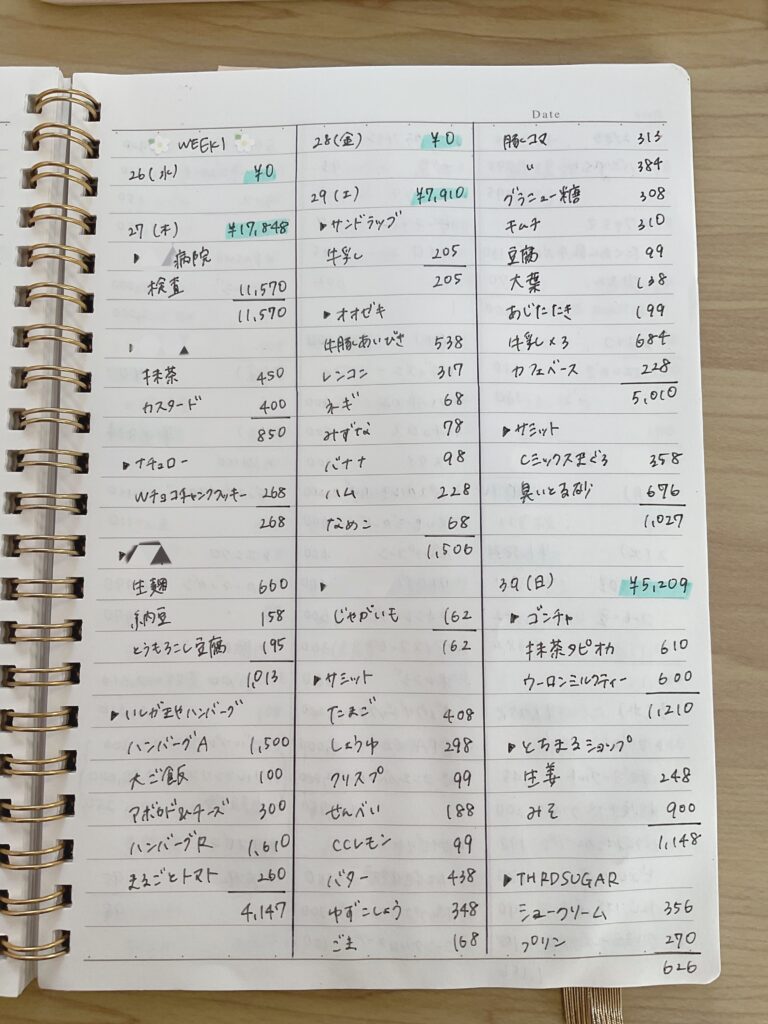 Date
WEEK1
26(水) ¥0
27(木) ¥17,848
▶ 病院
検査 11,570
11,570
抹茶 450
カスタード 400
850
▶ナチュロー
Wチョコチャンククッキー 268
268
生麹 660
納豆 158
とうもろこし豆腐 195
1,013
▶いしがまやハンバーグ
ハンバーグA 1,500
大ご飯 100
アボカド&チーズ 300
ハンバーグR 1,610
まるごとトマト 260
4,147
28(金) ¥0
29(土) ¥7,910
▶サンドラッグ
牛乳 205
205
▶オオゼキ
牛豚あいびき 538
レンコン 317
ネギ 68
みずな 78
バナナ 98
ハム 228
なめこ 68
1,506
▶
じゃがいも 162
162
▶サミット
たまご 408
しょうゆ 298
クリスプ 99
せんべい 188
CCレモン 99
バター 438
ゆずこしょう 348
ごま 168
豚コマ 313
〃 384
グラニュー糖 308
キムチ 310
豆腐 99
大葉 138
あじたたき 199
牛乳×3 684
カフェベース 228
5,010
▶サミット
Cミックスまぐろ 358
臭いとる砂 676
1,027
39(日) ¥5,209
▶ゴンチャ
抹茶タピオカ 610
ウーロンミルクティー 600
1,210
▶とちまるショップ
生姜 248
みそ 900
1,148
▶THRDSUGAR
シュークリーム 356
プリン 270
626